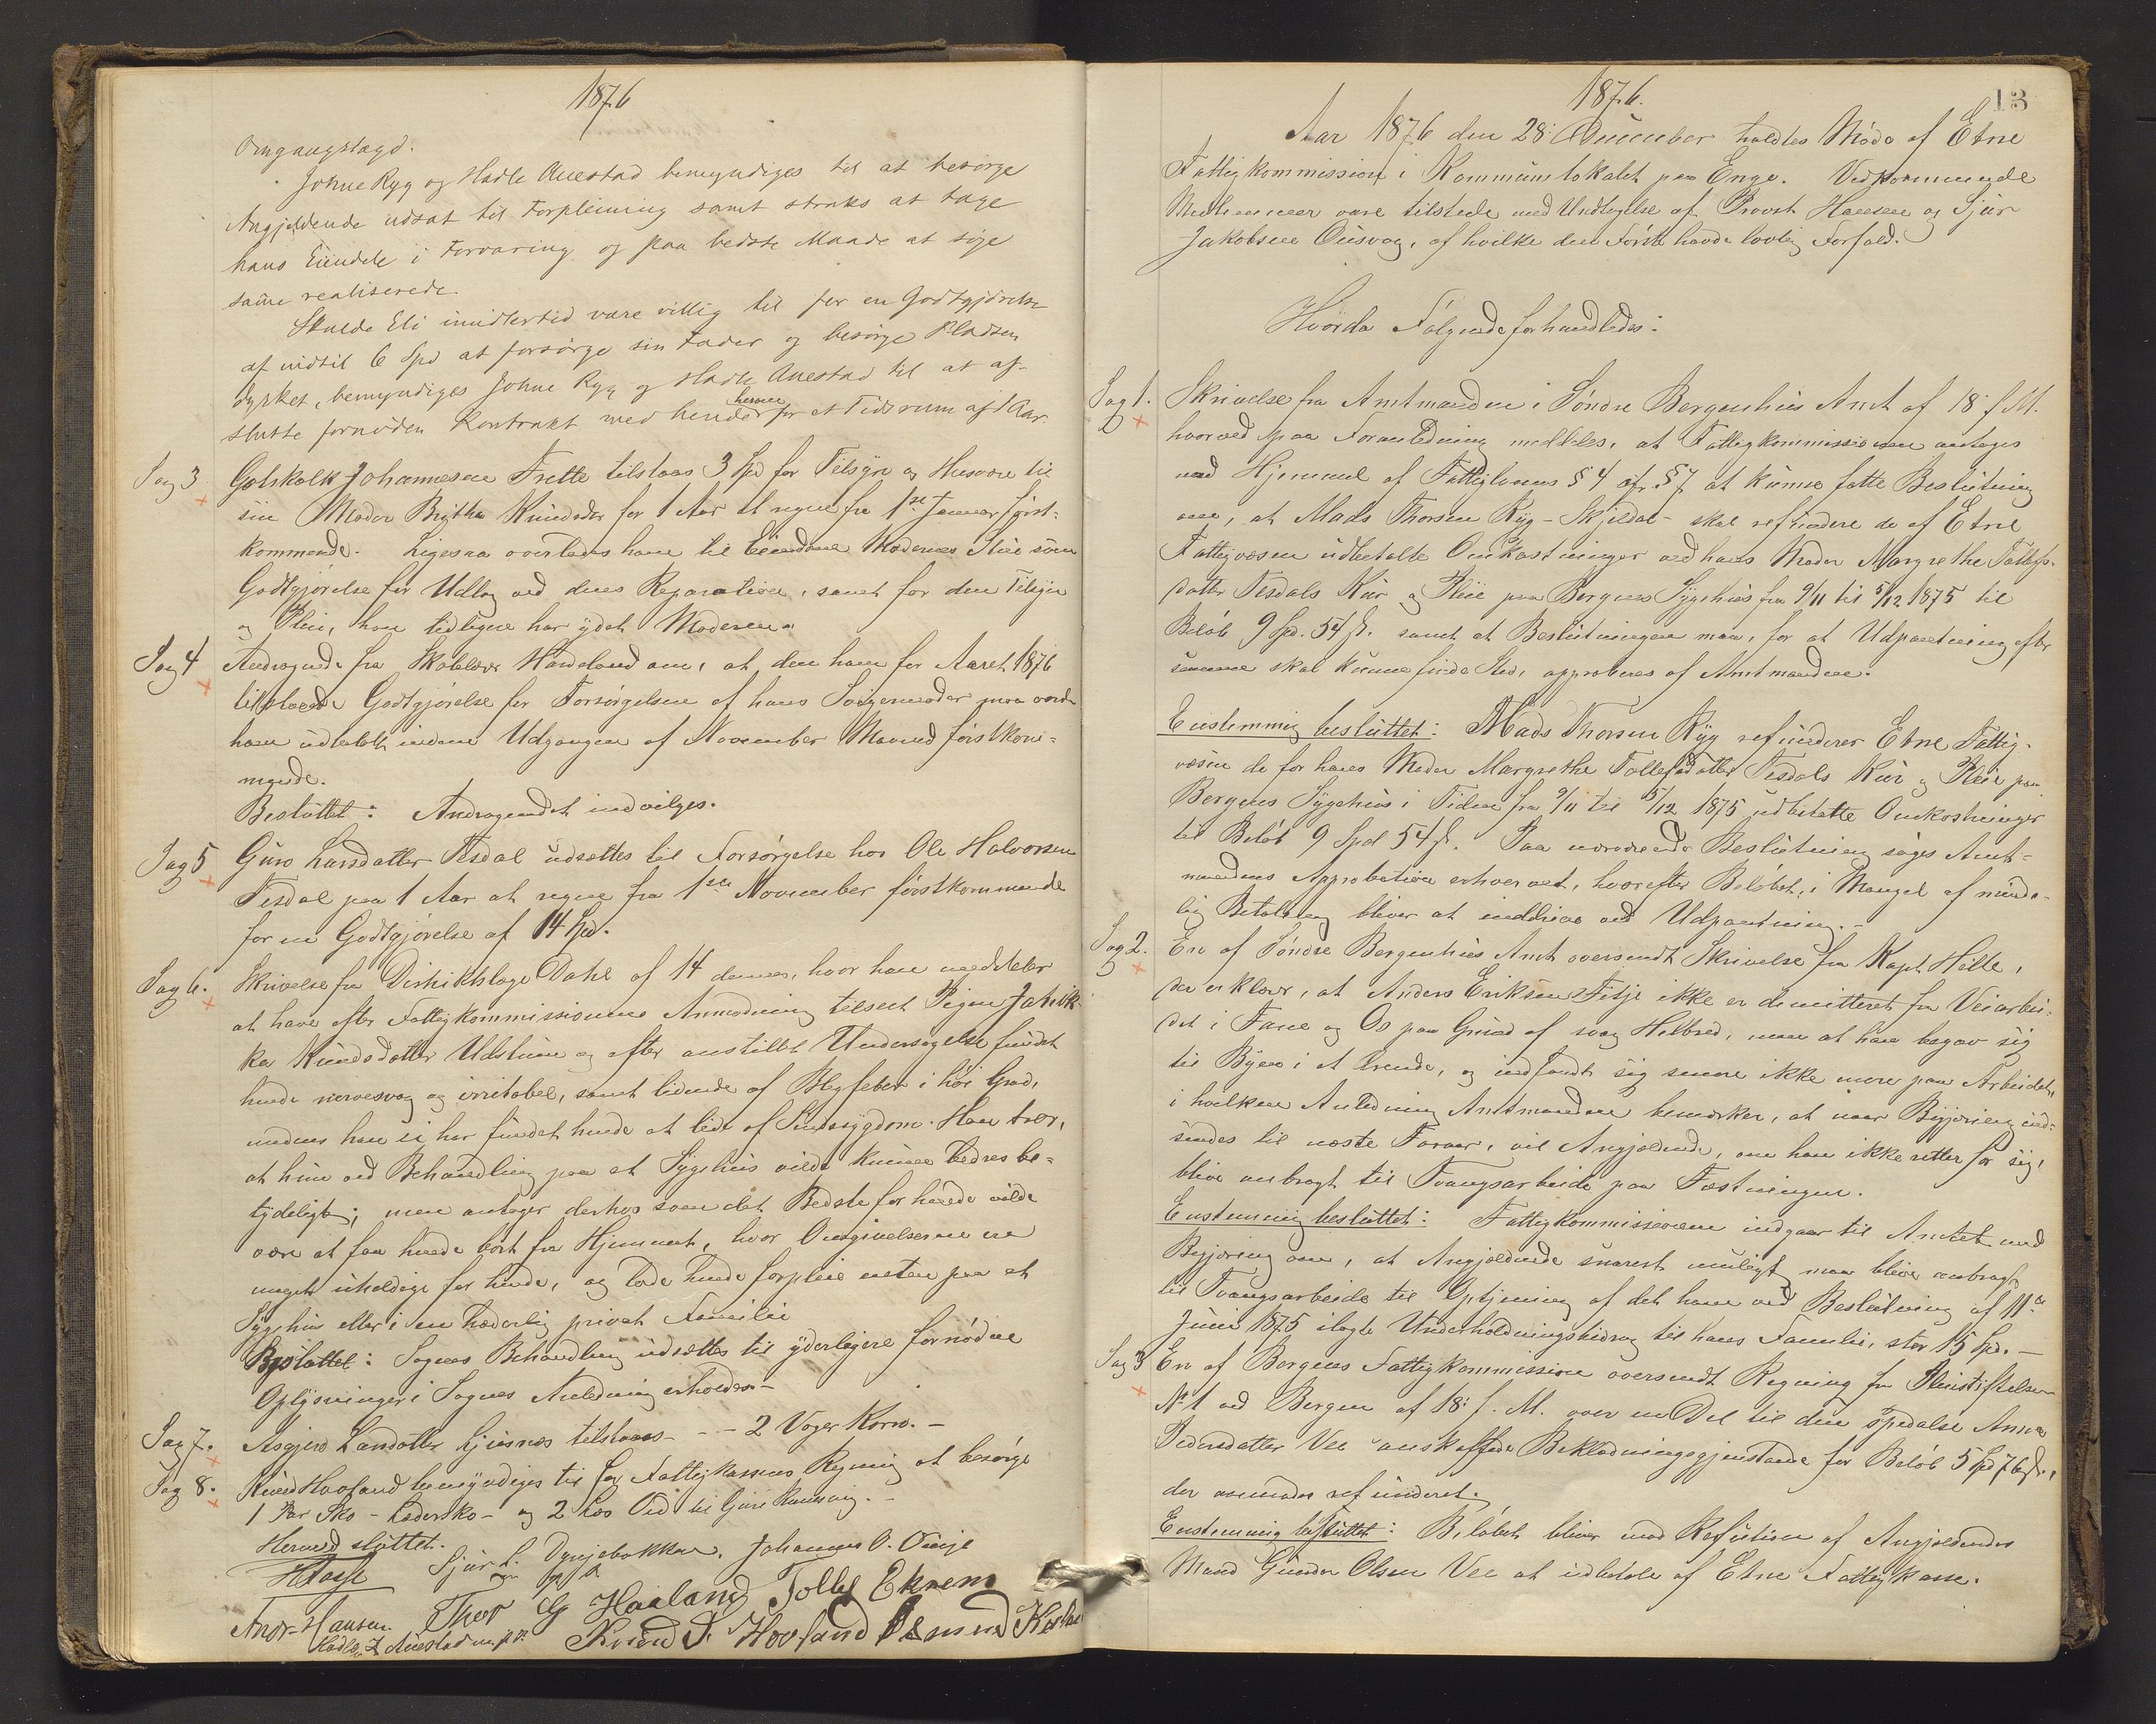 1876
Omgangslagd.
Johne Ryg og Hadle Auestad bemyndiges til at besørge
Angjeldende udsat til Forpleining samt straks at tage
hans Eiendele i Forvaring og paa bedste Maade at søge
same realiserede.
Skulde Eli imidlertid være villig til for en Godtgjørelse
af indtil 6 Spd at forsørge sin Fader og besørge Pladsen
dyrket, bemyndiges Johne Ryg og Hadle Auestad til at af-
slutte fornøden Kontrakt med hende herom for et Tidsrum af 1 Aar.
Sag 3 Gotskalk Johannesen Frette tilstaaes 3 Spd for Tilsyn og Husvære til
sin Moder Brytha Knudsdtr for 1 Aar at regne fra 1ste Januar først-
kommende. Ligesaa overlades ham til Eiendom Moderens Stue som
Godtgjørelse for Udlæg ved dens Reparation, samt for den Tilsyn
og Pleie, han tidligere har ydet Moderen.
Sag 4 Andragende fra Skolelærer Håndeland om, at den ham for Aaret 1876
tilstaaede Godtgjørelse for Forsørgelsen af hans Svigermoder maa vorde
ham udbetalt inden Udgangen af November Maaned førstkom-
mende.
Besluttet: Andragendet indvilges.
Sag 5 Guro Larsdatter Tesdal udsættes til Forsørgelse hos Ole Halvorsen
Tesdal paa 1 Aar at regne fra 1ste November førstkommende
for en Godtgjørelse af 14 Spd.
Sag 6. Skrivelse fra Distriktslæge Dahl af 14 dennes, hvor han meddeler
at have efter Fattigkommissionens Anmodning tilseet Pigen
Knudsdatter og efter anstillet Undersøgelse fundet
hende nervesvag og irritabel, samt lidende af Blegfeber i høi Grad,
medens han ei har fundet hende at lide af Sindssygdom. Han tror,
at hun ved Behandling paa et Sygehus vilde kunne bedres be-
tydeligt; men antager derhos som det Bedste for hende vilde
være at faa hende bort fra Hjemmet, hvor Omgivelserne ere
meget uheldige for hende, og lade hende forpleie enten paa et
Sygehus eller i en hæderlig privat Familie
Besluttet: Sagens Behandling udsættes til yderligere fornødne
Oplysninger i Sagens Anledning erholdes.-
Sag 7. Asgjerd Larsdatter tilstaaes - - - 2 Voger Korn. -
Sag 8. Knud Hovland bemyndiges til for Fattigkassens Regning at besørge
1 Par Sko - Lædersko - og 2 Læs Ved til Guri
Hermed sluttet.
Sjur L. Dyrjebakken. Johannes O.
m p P
Andr. Hansen Thor G Haaland Tollef Ekrem
Hadle Auestad m. p. P. Knud T. Hovland
1876. 13
Aar 1876 den 28: December holdtes Møde af Etne
Fattigkommission i Kommunelokalet paa Enge. Vedkommende
Medlemmer vare tilstede med Undtagelse af Provst Hansen og Sjur
Jakobsen, af hvilke den Første havde lovlig Forfald.
Hvorda Følgende forhandledes:
Sag 1. Skrivelse fra Amtmanden i Søndre Bergenhus Amt af 18: f. M.
hvorved paa Foranledning meddeles, at Fattigkommissionen antages
med Hjemmel af Fattiglovens § 4 cfr. § 7 at kunne fatte Beslutning
om, at Mads Thorsen Ryg - Skjeldal - skal refundere de af Etne
Fattigvæsen udbetalte Omkostninger ved hans Moder Margrethe Tollefs-
datter Tesdals Kur og Pleie paa Bergens Sygehus fra 9/11 til 5/12 1875 til
Beløb 9 Spd. 54 ſk. samt at Beslutningen maa, for at Udpantning efter
samme skal kunne finde Sted, approberes af Amtmanden.
Enstemmig besluttet: Mads Thorsen Ryg refunderer Etne Fattig-
væsen de for hans Moder Margrethe Tollefsdatter Tesdals Kur og Pleie paa
Bergens Sygehus i Tiden fra 9/11 til 5/12 1875 udbetalte Omkostninger
til Beløb 9 Spd 54 ſk. Paa nærværende Beslutning søges Amt-
mandens Approbation erhvervet, hvorefter Beløbet, i Mangel af minde-
lig Betaling bliver at inddrive ved Udpantning. -
Sag 2. En af Søndre Bergenhus Amt oversendt Skrivelse fra Kapt. Hille,
der erklærer, at Anders Eriksen Fitje ikke er demitteret fra Veiarbei-
det i Fane og Os paa Grund af svag Helbred, men at han begav sig
til Byen i et Ærende, og indfandt sig senere ikke mere paa Arbeidet,
i hvilken Anledning Amtmanden bemærker, at naar Begjæring ind-
sendes til næste Foraar, vil Angjældende, om han ikke retter for sig,
blive anbragt til Tvangsarbeide paa Fæstningen.
Enstemmig besluttet: Fattigkommissionen indgaar til Amtet med
Begjæring om, at Angjældende snarest muligt maa blive anbragt
til Tvangsarbeide til Optjening af det ham ved Beslutning af 11te
Juni 1875 ilagte Underholdningsbidrag til hans Familie, stor 15 Spd. -
Sag 3 En af Bergens Fattigkommission oversendt Regning fra Pleiestiftelsen
No 1 ved Bergen af 18: f. M. over en Del til den spedalske Anna
Pedersdatter Vee anskaffede Beklædningsgjenstande for Beløb 5 Spd 76 ſk.,
der anmodes refunderet.
Enstemmig besluttet: Beløbet bliver mod Refusion af Angjældendes
Mand Gunder Olsen Vee at udbetale af Etne Fattigkasse.